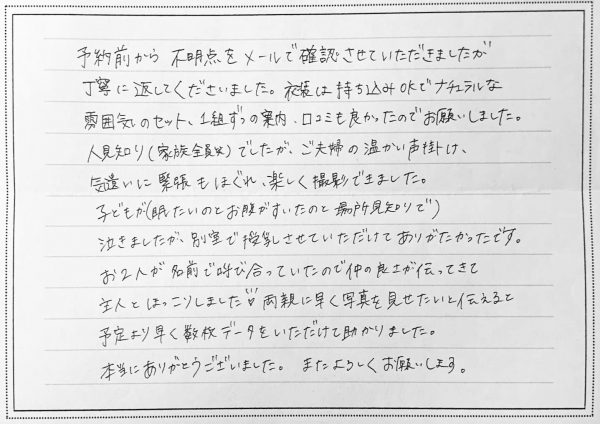 予約前から 不明点をメールで確認させていただきましたが
丁寧に返してくださいました。衣装は持ち込みOKでナチュラルな
雰囲気のセット、1組ずつの案内、口コミも良かったのでお願いしました。
人見知り(家族全員)でしたが、ご夫婦の温かい声掛け、
気遣いに緊張もほぐれ、楽しく撮影できました。
子どもが(眠たいのとお腹がすいたのと場所見知りで)
泣きましたが、別室で授乳させていただけてありがたかったです。
お2人が名前で呼び合っていたので仲の良さが伝ってきて
主人とほっこりしました 両親に早く写真を見せたいと伝えると
予定より早く数枚データをいただけて助かりました。
本当にありがとうございました。 またよろしくお願いします。